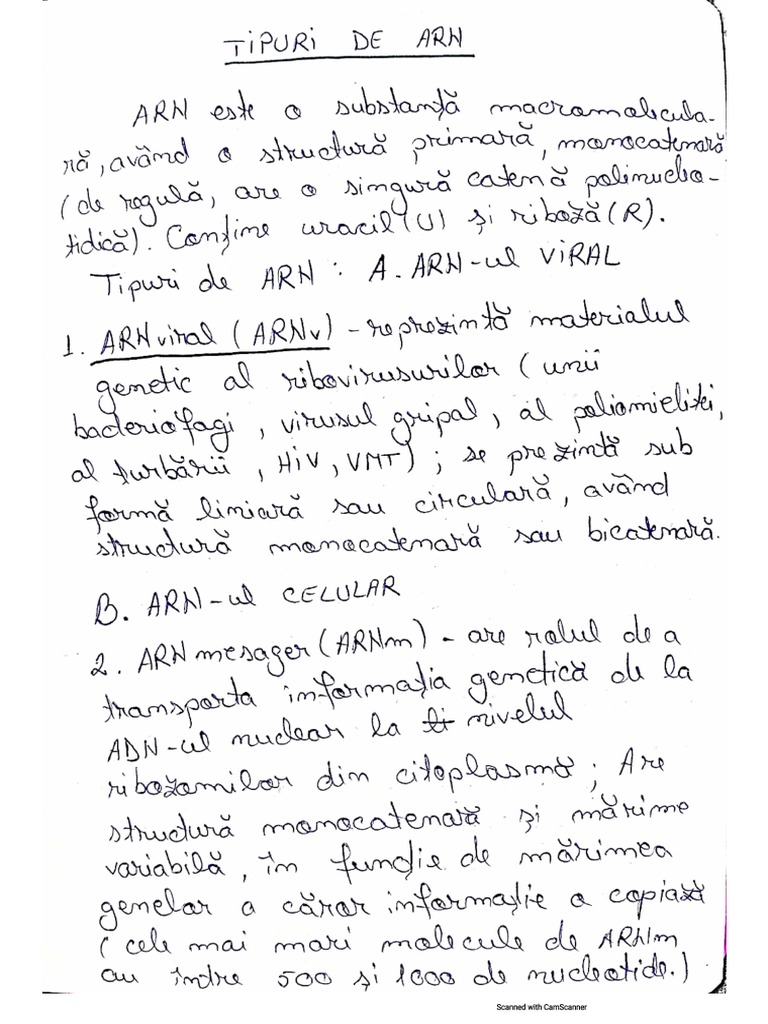 TIPURI DE ARN
ARN este o substanță macromolecula-
ră, având o structură primară, monocatenară
(de regulă, are o singură catenă polinucleo-
tidică). Conține uracil (U) și riboză (R).
Tipuri de ARN : A. ARN-ul VIRAL
1. ARN viral (ARNv) - reprezintă materialul
genetic al ribovirusurilor (unii
bacteriofagi, virusul gripal, al poliomielitei,
al turbării, HIV, VMT) ; se prezintă sub
formă liniară sau circulară, având
structură monocatenară sau bicatenară.
B. ARN-ul CELULAR
2. ARN mesager (ARNm) - are rolul de a
transporta informația genetică de la
ADN-ul nuclear la nivelul
ribozomilor din citoplasmă ; Are
structură monocatenară și mărime
variabilă, în funcție de mărimea
genelor a căror informație o copiază
(cele mai mari molecule de ARNm
au între 500 și 1000 de nucleotide.)
Scanned with CamScanner